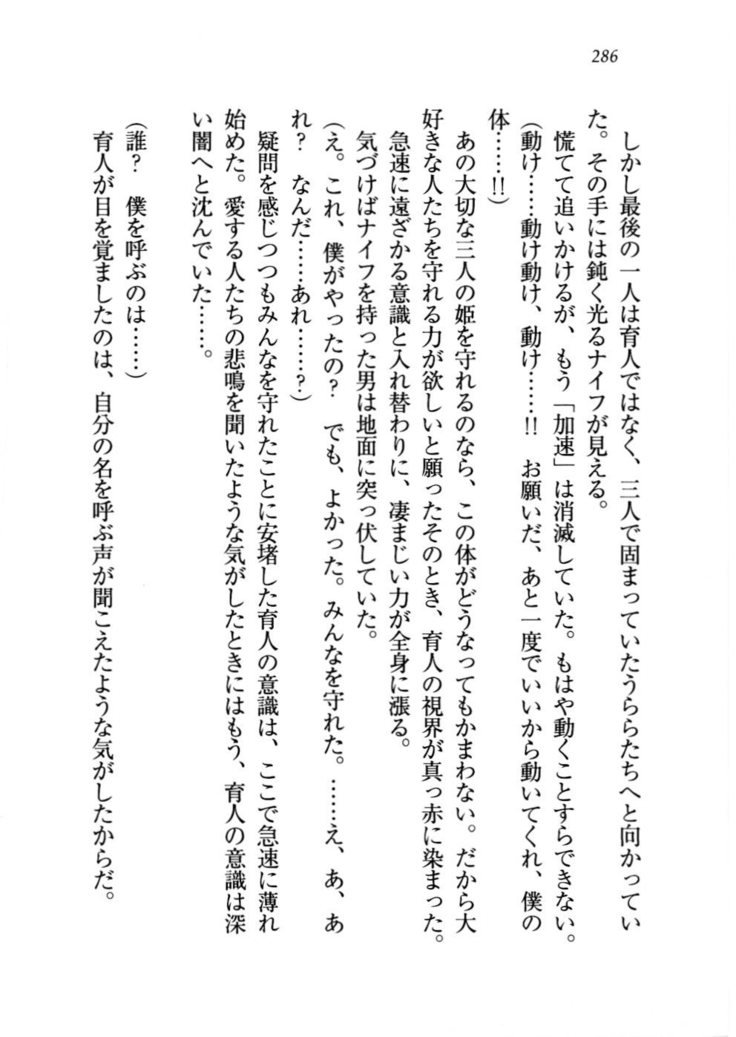 286
しかし最後の一人は育人ではなく、三人で固まっていたうららたちへと向かってい
た。その手には鈍く光るナイフが見える。
慌てて追いかけるが、もう「加速」は消滅していた。もはや動くことすらできない。
(動け……動け動け、動け……!!　お願いだ、あと一度でいいから動いてくれ、僕の
体……!!)
あの大切な三人の姫を守れるのなら、この体がどうなってもかまわない。だから大
好きな人たちを守れる力が欲しいと願ったそのとき、育人の視界が真っ赤に染まった。
急速に遠ざかる意識と入れ替わりに、凄まじい力が全身に漲る。
気づけばナイフを持った男は地面に突っ伏していた。
(え。これ、僕がやったの?　でも、よかった。みんなを守れた。……え、あ、あ
れ?　なんだ……あれ……?)
疑問を感じつつもみんなを守れたことに安堵した育人の意識は、ここで急速に薄れ
始めた。愛する人たちの悲鳴を聞いたような気がしたときにはもう、育人の意識は深
い闇へと沈んでいた……。
(誰?　僕を呼ぶのは……)
育人が目を覚ましたのは、自分の名を呼ぶ声が聞こえたような気がしたからだ。